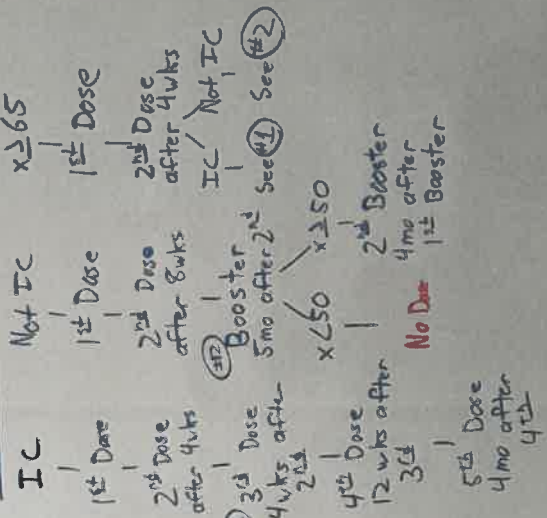 IC
1st Dose
2nd Dose
after 4wks
3rd Dose
4wks after
2nd
4th Dose
12 wks after
3rd
5th Dose
4mo after
4th
Not IC
1st Dose
2nd Dose
after 8wks
#2
Booster
5mo after 2nd
x<50
No Dose
x≥50
2nd Booster
4mo after
1st Booster
x≥65
1st Dose
2nd Dose
after 4wks
IC
See #1
Not IC
See #2